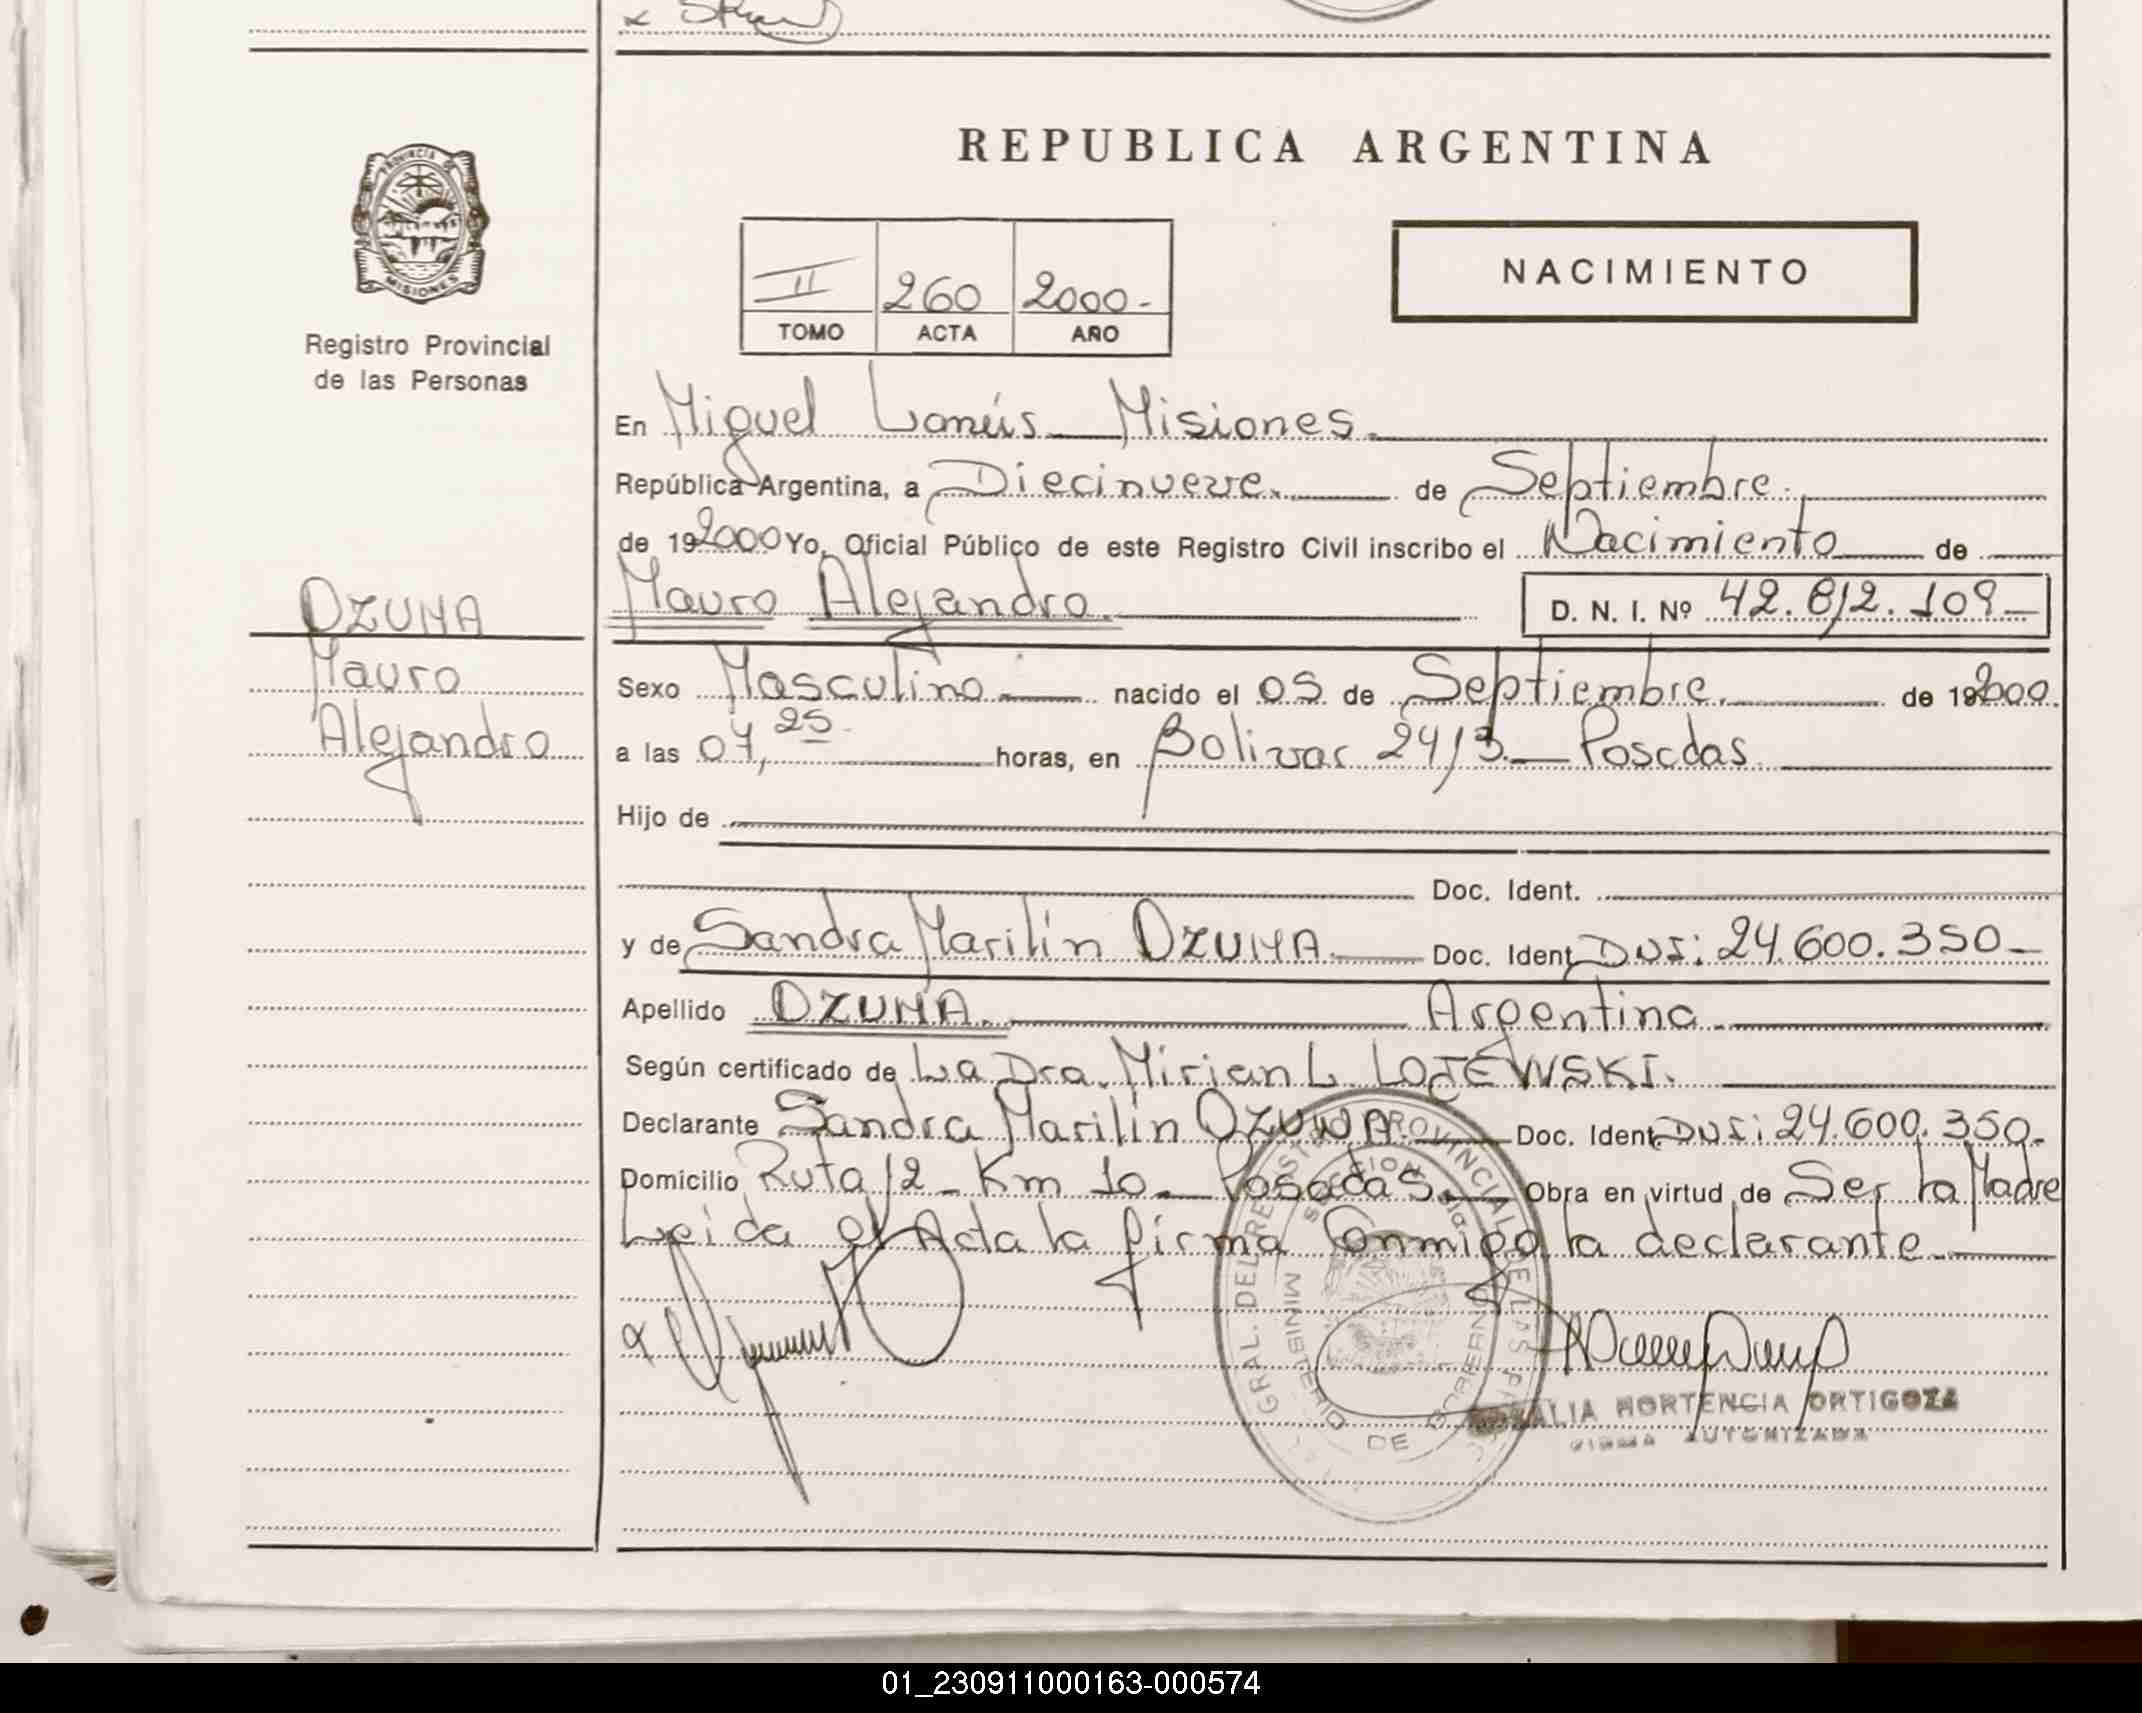 PROVINCIA DE
MISIONES
Registro Provincial
de las Personas
REPUBLICA ARGENTINA
II 260 2000-
TOMO ACTA AÑO
NACIMIENTO
En Miguel Lanús Misiones.
República Argentina, a Diecinueve. de Septiembre.
de 192000 Yo, Oficial Público de este Registro Civil inscribo el Nacimiento de
OZUNA
Mauro
Alejandro
Mauro Alejandro. D. N. I. Nº 42.812.109-
Sexo Masculino nacido el 05 de Septiembre. de 192000.
a las 07,25. horas, en Bolivar 2413. Posadas
Hijo de
Doc. Ident.
y de Sandra Marilín OZUNA. Doc. Ident. DNI: 24.600.350-
Apellido OZUNA. Argentina.
Según certificado de La Dra. Mirian L. LOJEWSKI.
Declarante Sandra Marilín OZUNA. Doc. Ident. DNI: 24.600.350.
Domicilio Ruta 12 - Km 10. Posadas. Obra en virtud de Ser la Madre
Leida el Acta la firma Conmigo la declarante.
GRAL. DEL REGISTRO PROVINCIAL DE LAS
MINISTERIO DE GOBIERNO
HORTENCIA ORTIGOZA
FIRMA AUTORIZADA
01_230911000163-000574